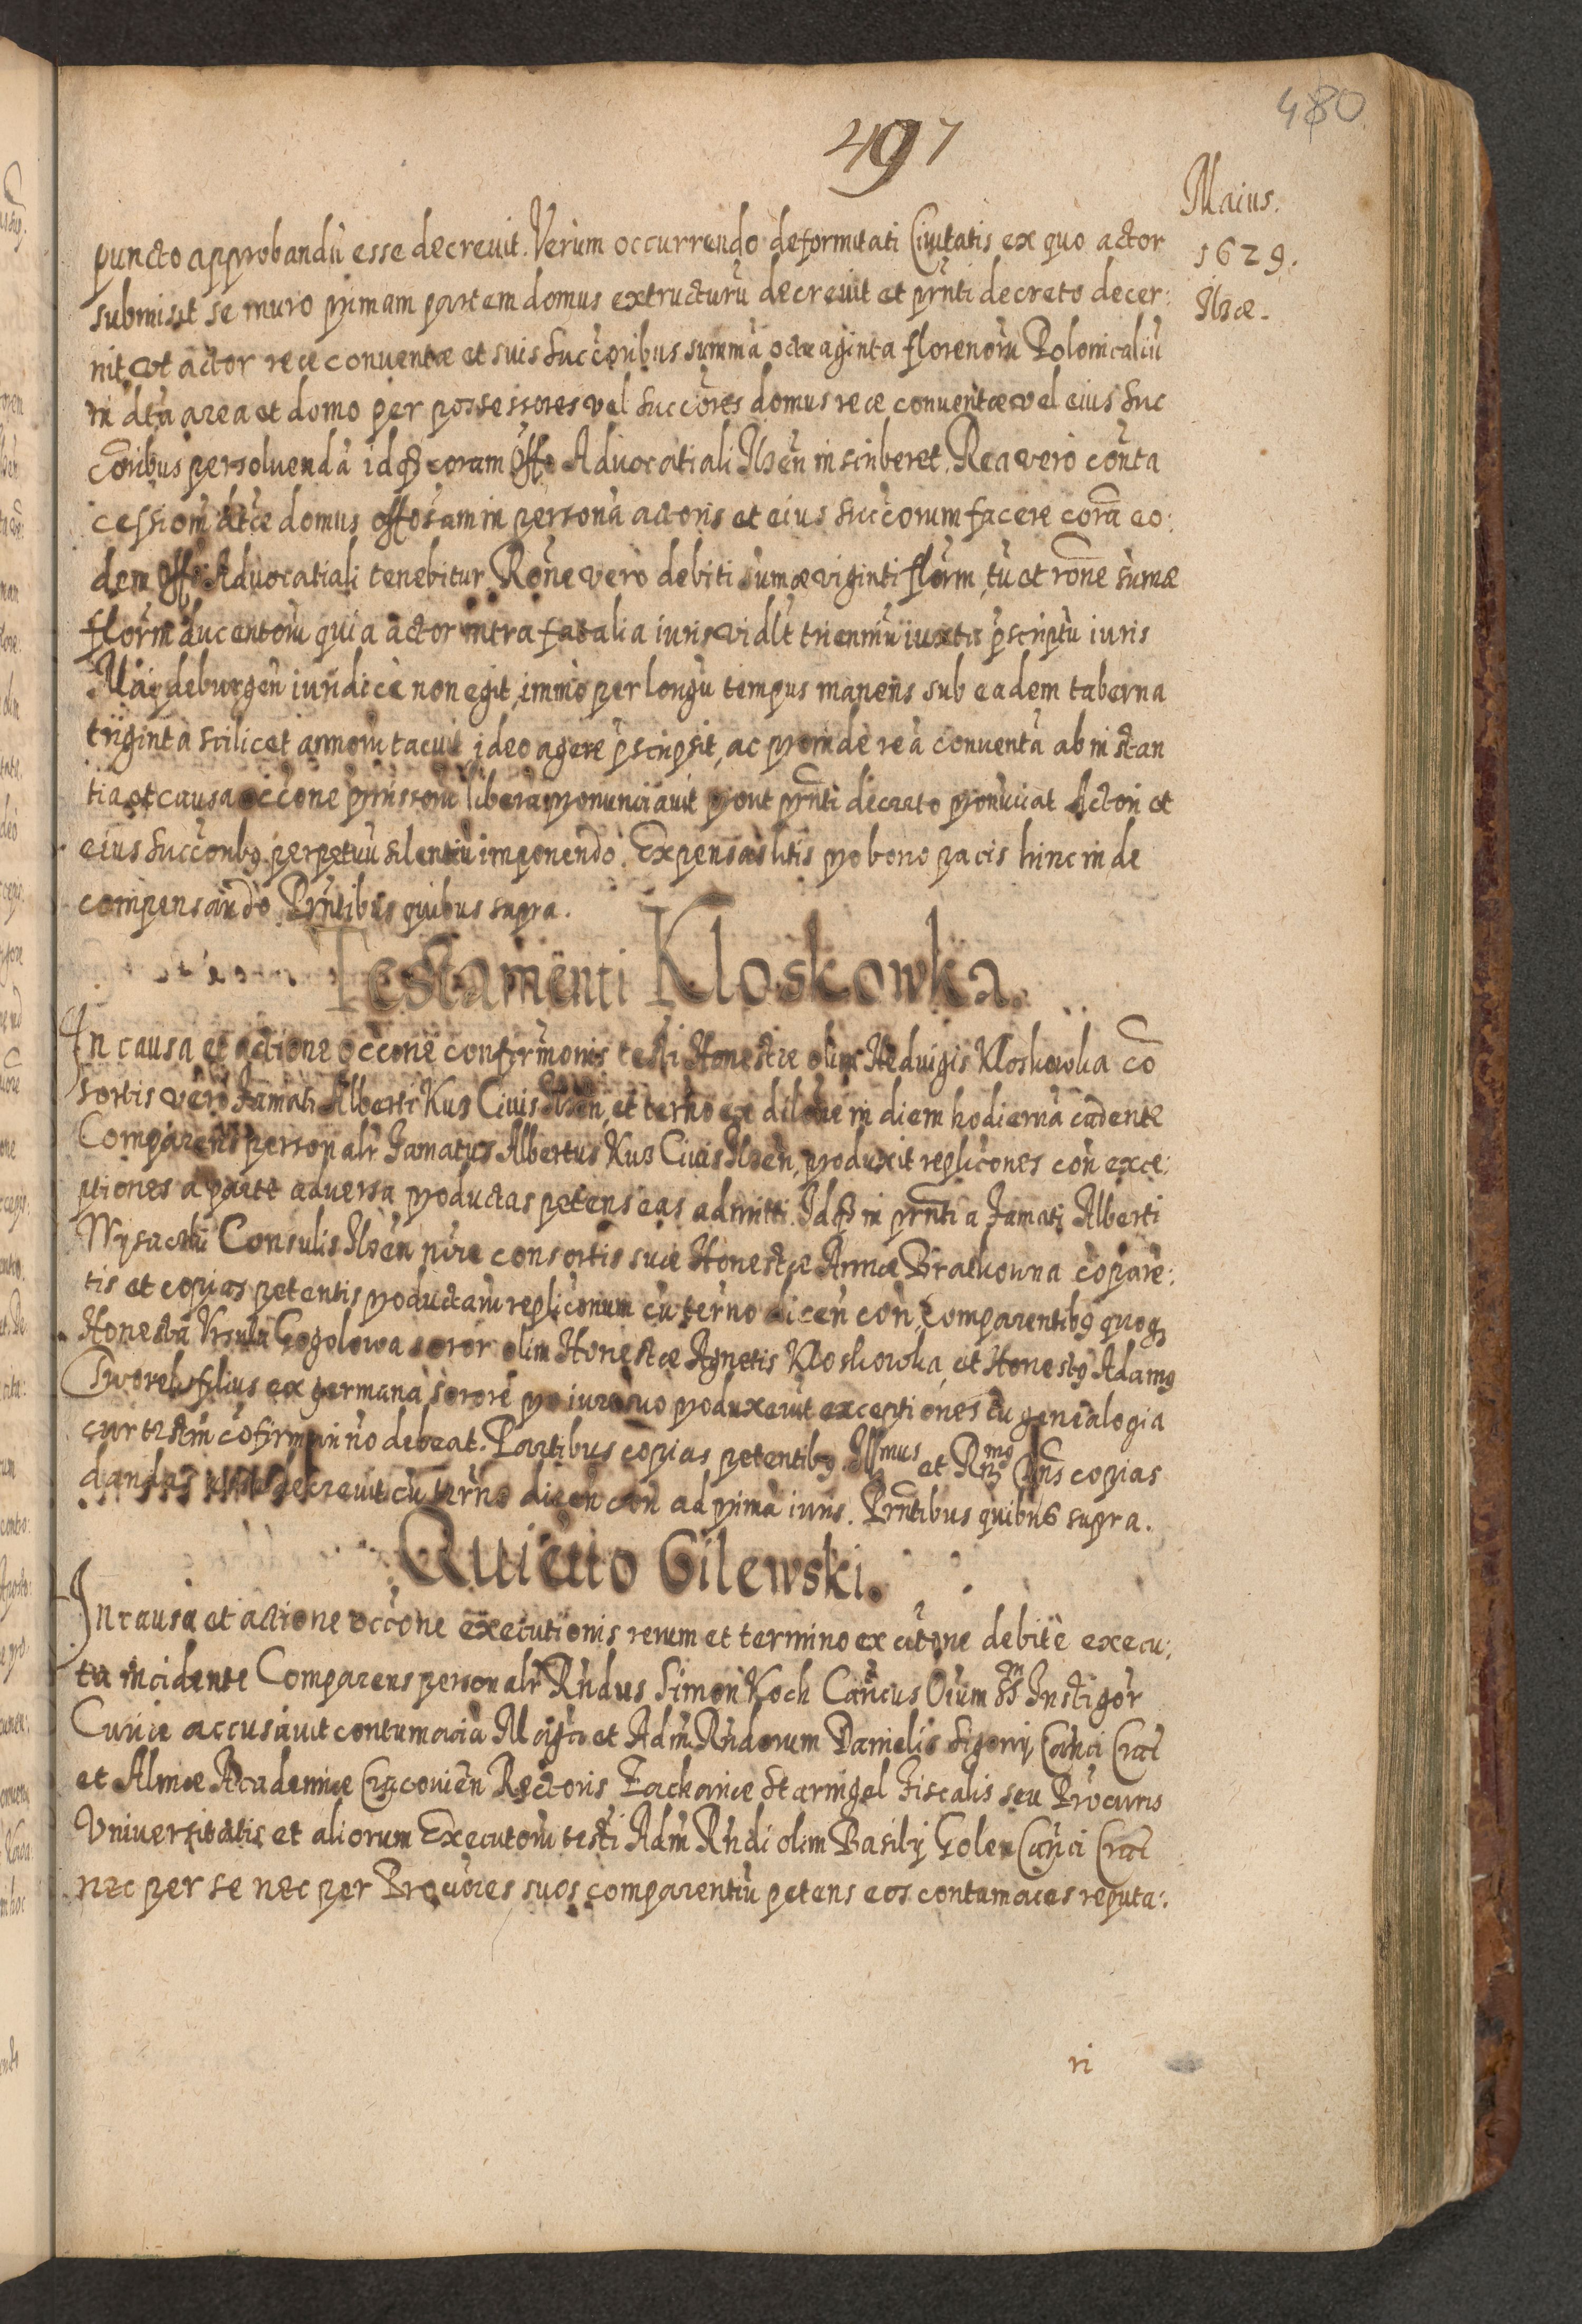 480
497
Maius.
1629.
Ilzæ.
puncto approbandū esse decreuit. Verum occurrendo deformitati Ciuitatis ex quo actor
submisit se muro primam partem domus extructurū decreuit et prn̄ti decreto decer:
nit, vt actor reæ conuentæ et suis Succōribus summā octuaginta florenorū Polonicaliū
in dt̄a area et domo per possessores vel Succōres domus reæ conuentæ vel eius Suc
cōribus persoluendā idq3 coram Offō Aduocatiali Ilzēn inscriberet. Rea vero conuēta
cessionē dt̄æ domus in personā actoris et eius Succōrum facere corā eo:
dem Offō Aduocatiali tenebitur. Rōne vero debiti sum̄æ viginti flōrm, tū et rōne sum̄æ
flōrm ducentorū quia actor intra fatalia iuris vidlt trienniū iuxta p̄scriptū iuris
Maydeburgēn iuridice non egit, immo per longū tempus manens sub eadem taberna
triginta scilicet annorū tacuit, ideo agere p̄scripsit, ac proinde reā conuentā ab instan
tia et causa occōne prm̄issorū liberā pronunciauit prout prn̄ti decreto pronūciat Actori et
eius Succōribq perpetuū silentiū imponendo. Expensas litis pro bono pacis hinc inde
compensando. Prn̄tibus quibus supra.
Testamenti Kloskowka.
In causa et actione occōne confirm̄onis testi Honestæ olim Heduigis Kloskowka cō
sortis vero Famati Alberti Kus Ciuis Ilzēn, et terno ex dilōne in diem hodiernā cadente
Comparens personalr Famatus Albertus Kus Ciuis Ilzēn, produxit replicōnes con exce:
ptiones a parte aduersa productas petens eas admitti. Idq3 in prn̄ti a Famati Alberti
Consulis Ilzēn nōie consortis suæ Honestæ Annæ Bratkowna cōpare:
tis et copias petentis productarū replicōnum cū terno dicēn con, Comparentibq quoq3
Honesta Vrsula Gogolowa soror olim Honestæ Agnetis Kloskowka, et Honestq Adamq
filius ex germana sorore pro iure suo produxerūt exceptiones cū genealogia
cur testm cōfirmari nō debeat. Partibus copias petentibq. Illmus et Rn̄mq Dn̄s copias
dandas esse decreuit cū terno dicēn con ad primā iuris. Prn̄tibus quibus supra.
Quietto Gilewski.
In causa et actione occōne executionis rerum et termino ex citōne debite execu:
ta incidente Comparens personalr Rn̄dus Simon Koch Can̄cus Oīum SSm Instigōr
Curiæ accusauit contumaciā Magci et Adm̄ Rn̄dorum Danielis Sigonij Can̄ci Crac̄
et Almæ Academiæ Cracouiēn Rectoris Zachariæ Staringel Fiscalis seu Procuris
Vniuersitatis et aliorum Executorū testi Adm̄ Rn̄di olim Basilij Can̄ci Crac̄
nec per se nec per Procuōres suos comparentiū petens eos contumaces reputa:
ri